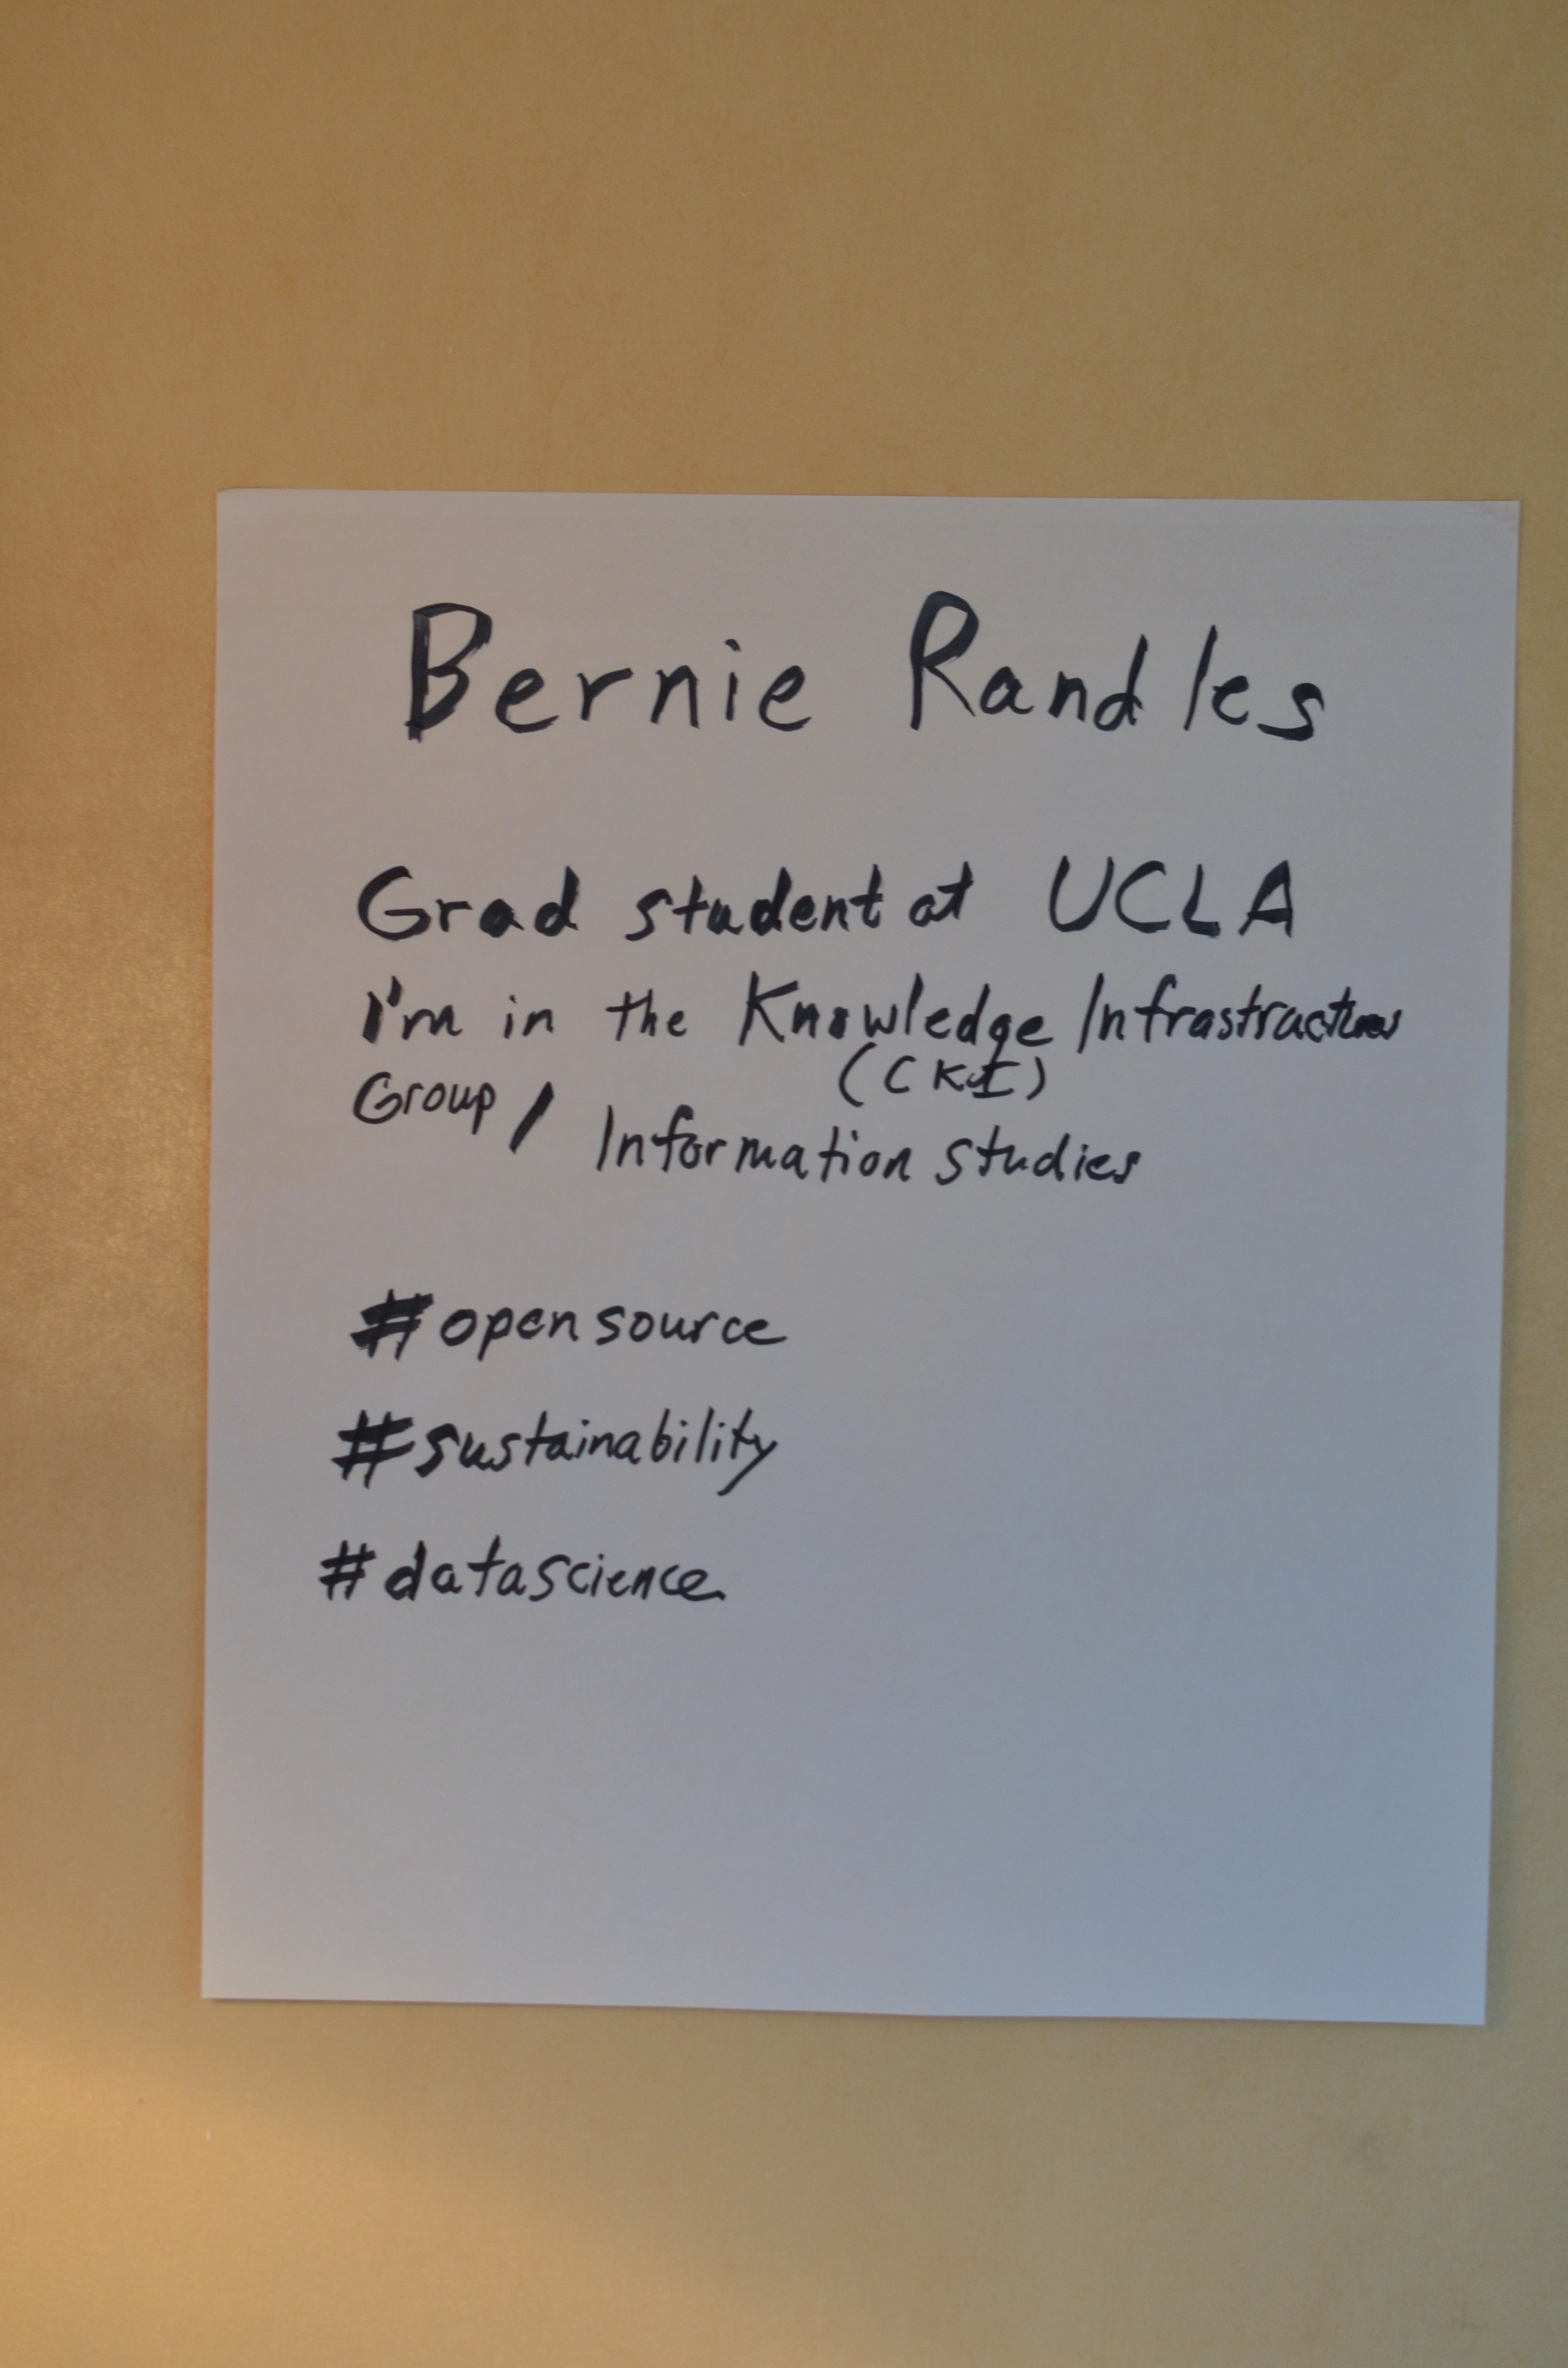 Bernie Randles
Grad student at UCLA
I'm in the Knowledge Infrastructures
(CKI)
Group / Information Studies
#opensource
#sustainability
#datascience